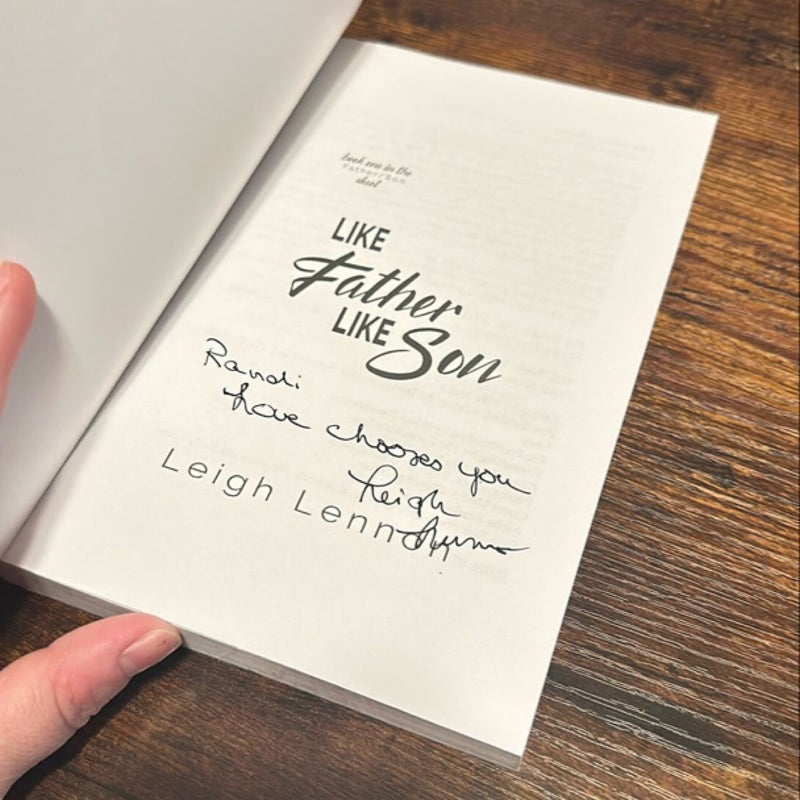 book one in the
Father/Son
duet
LIKE
Father
LIKE
Son
Randi
Love chooses you
Leigh
Leigh Lennox